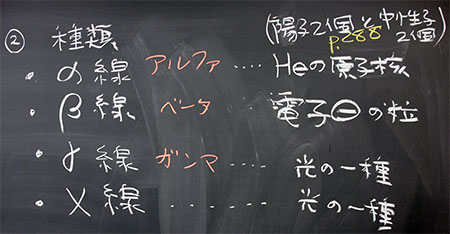 ② 種類 (陽子2個と中性子2個)
p.288
・α線 アルファ ‥‥ Heの原子核
・β線 ベータ ‥‥ 電子⊖の粒
・γ線 ガンマ ‥‥‥ 光の一種
・X線 ‥‥‥‥ 光の一種